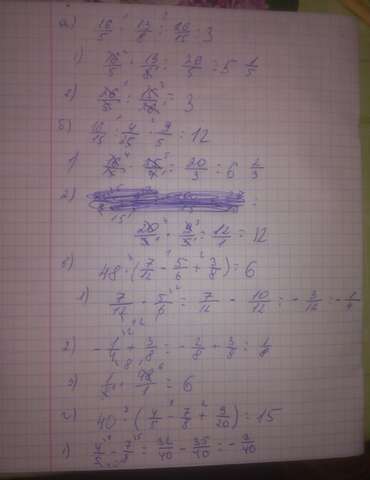 а) 16/5 : 13/8 : 26/15 = 3
1) 16/5 · 13/8 = 26/5 = 5 1/5
2) 26/5 · 15/26 = 3
б) 16/15 : 4/25 · 9/5 = 12
1) 16/15 · 25/4 = 20/3 = 6 2/3
2)
20/3 · 9/5 = 12/1 = 12
48 · (7/12 - 5/6 + 3/8) = 6
1) 7/12 - 5/6 = 7/12 - 10/12 = - 3/12 = - 1/4
2) - 1/4 + 3/8 = - 2/8 + 3/8 = 1/8
3) 1/8 · 48/1 = 6
г) 40 · (4/5 - 7/8 + 9/20) = 15
1) 4/5 - 7/8 = 32/40 - 35/40 = - 3/40